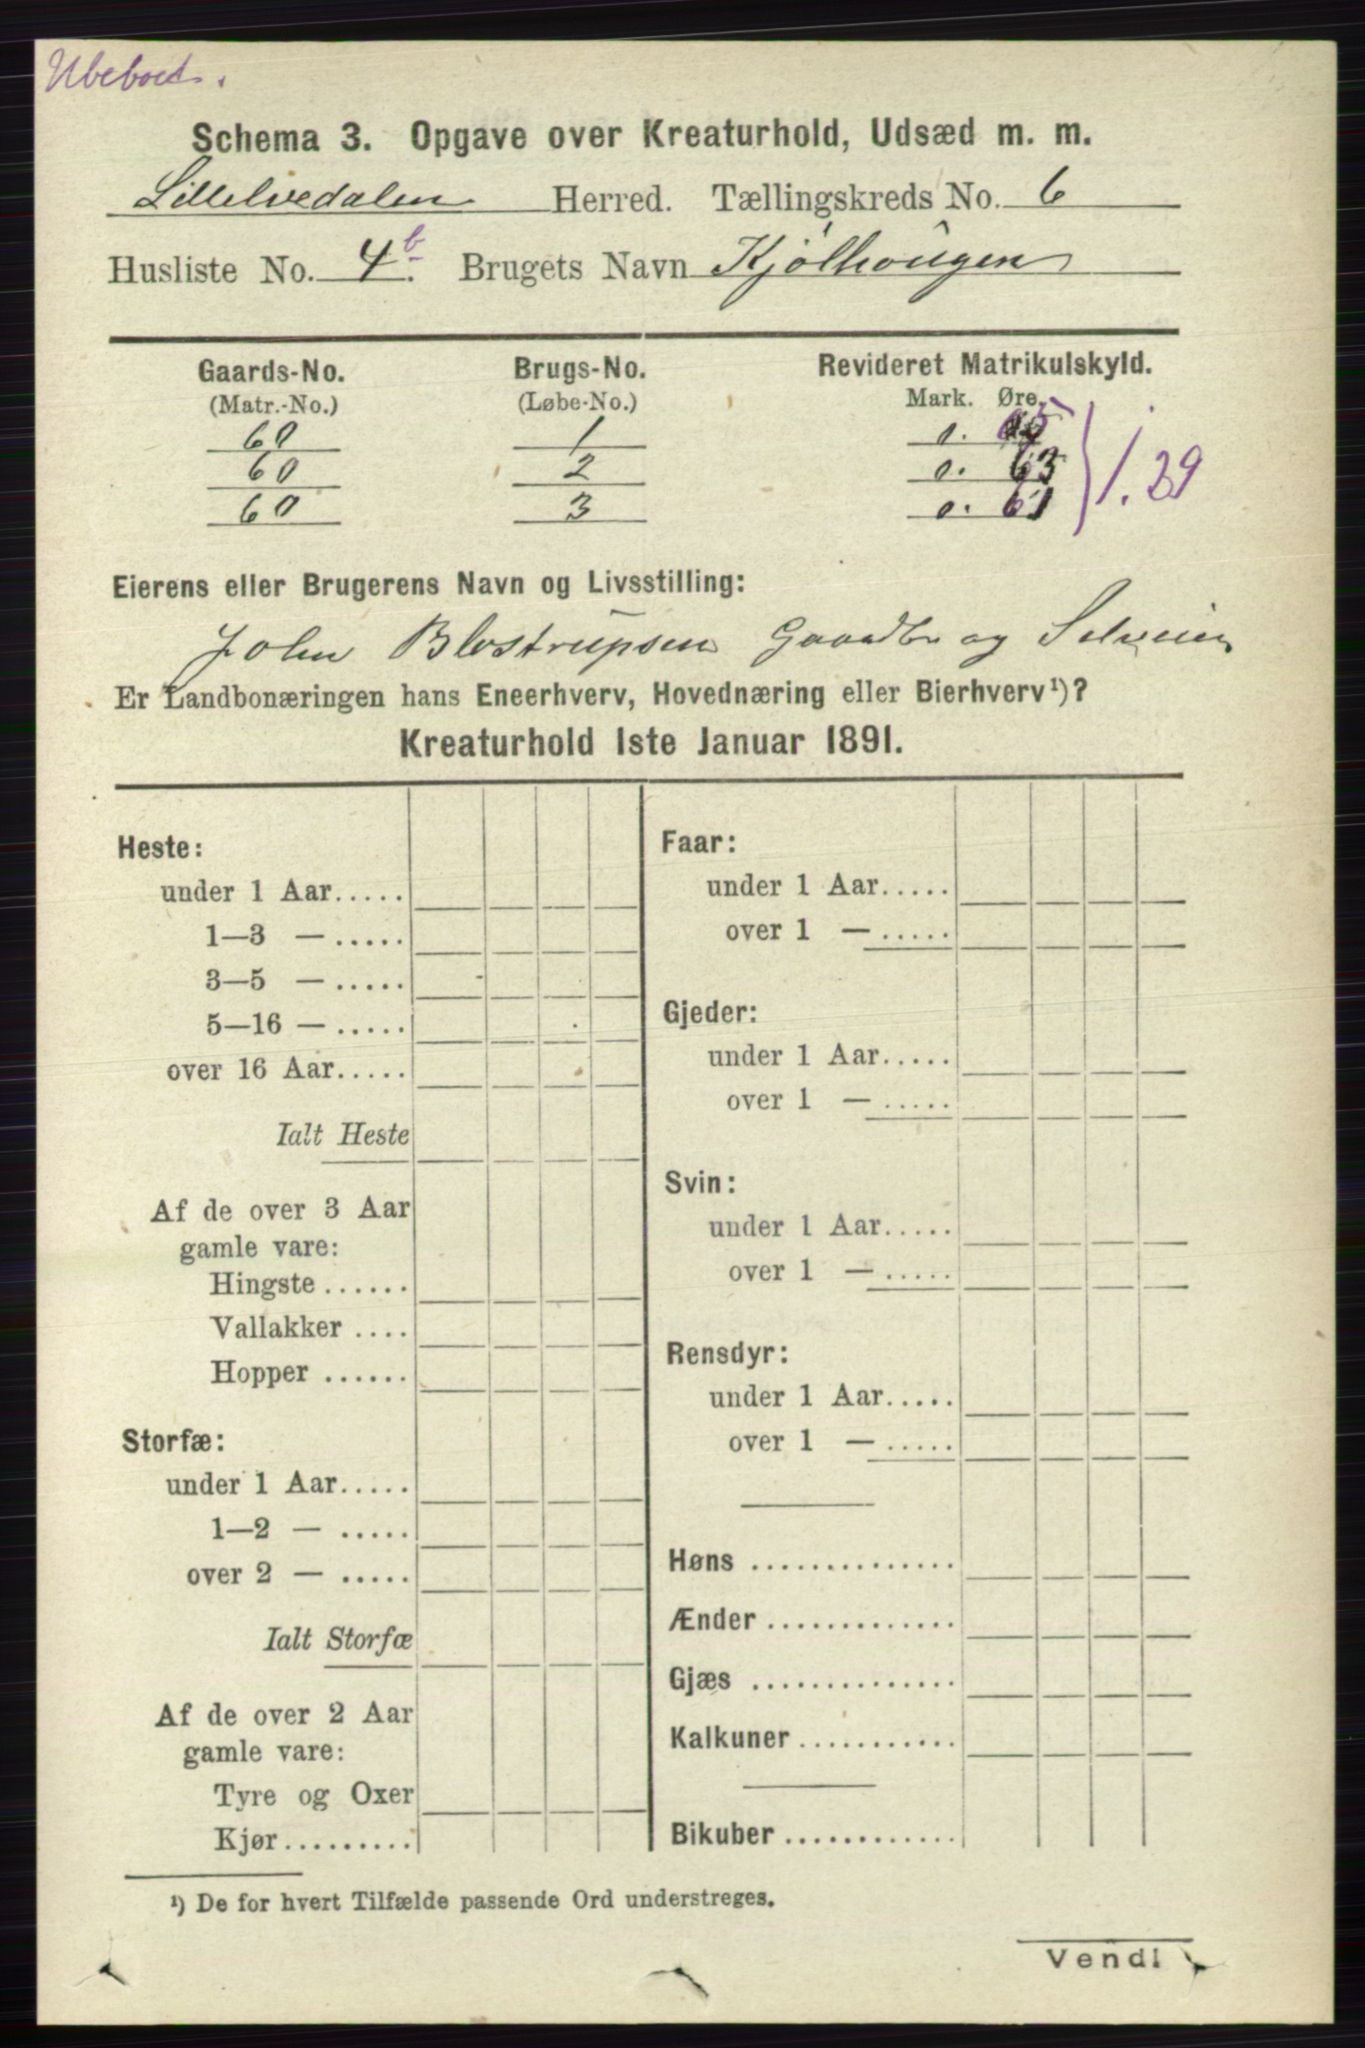 Ubeboet.
Schema 3. Opgave over Kreaturhold, Udsæd m. m.
Lillelvedalen Herred. Tællingskreds No. 6
Husliste No. 4b. Brugets Navn Kjølhougen
Gaards-No. Brugs-No. Revideret Matrikulskyld.
(Matr.-No.) (Løbe-No.) Mark. Øre.
60 1 0. 05
60 2 0. 63 1.29
60 3 0. 61
Eierens eller Brugerens Navn og Livsstilling:
John Blostrupsen Gaardbr og Selveier
Er Landbonæringen hans Eneerhverv, Hovednæring eller Bierhverv¹)?
Kreaturhold 1ste Januar 1891.
Heste:
under 1 Aar.....
1—3 — .....
3—5 — .....
5—16 — .....
over 16 Aar.....
Ialt Heste
Af de over 3 Aar
gamle vare:
Hingste ......
Vallakker ....
Hopper ......
Storfæ:
under 1 Aar.....
1—2 — .....
over 2 — .....
Ialt Storfæ
Af de over 2 Aar
gamle vare:
Tyre og Oxer
Kjør.........
Faar:
under 1 Aar.....
over 1 — .....
Gjeder:
under 1 Aar.....
over 1 — .....
Svin:
under 1 Aar.....
over 1 — .....
Rensdyr:
under 1 Aar.....
over 1 — .....
Høns ..............
Ænder .............
Gjæs ..............
Kalkuner ...........
Bikuber ............
¹) De for hvert Tilfælde passende Ord understreges.
Vend!